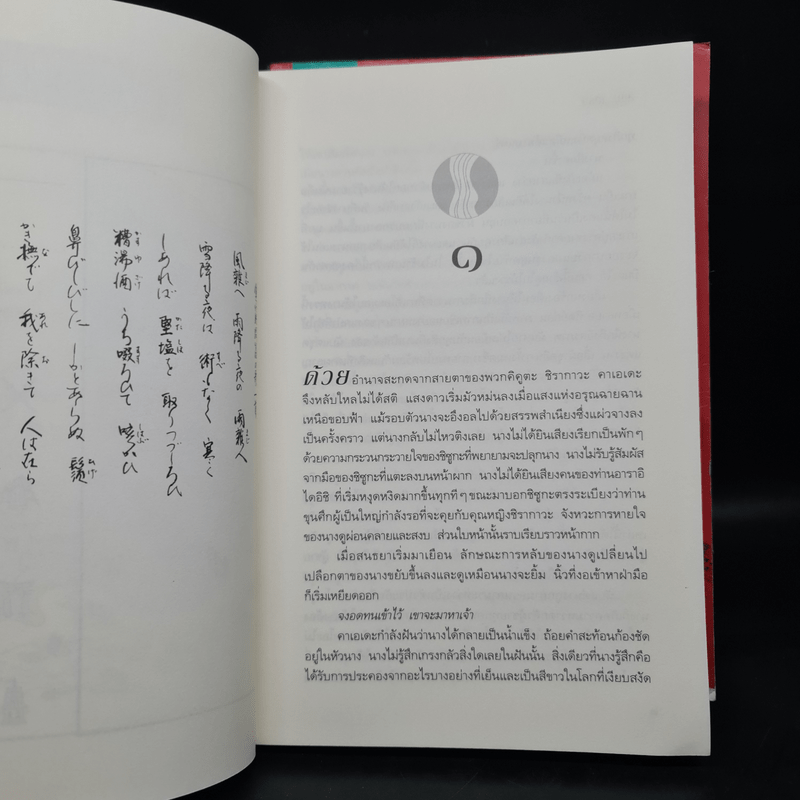 風雜へ 雨降る夜の 雨雜へ
雪降る夜は 術もなく 寒く
しあれば 堅塩を 取りつづろひ
糟湯酒 うち啜ろひて 咳かひ
鼻びしびしに しかとあらぬ 鬚
かき撫でて 我を除きて 人は在ら
๑
ด้วยอำนาจสะกดจากสายตาของพวกคิคูตะ ชิรากาวะ คาเอเดะ
จึงหลับใหลไม่ได้สติ แสงดาวเริ่มมัวหม่นลงเมื่อแสงแห่งอรุณฉายฉาน
เหนือขอบฟ้า แม้รอบตัวนางจะอึงอลไปด้วยสรรพสำเนียงซึ่งแผ่วจางลง
เป็นครั้งคราว แต่นางกลับไม่ไหวติงเลย นางไม่ได้ยินเสียงเรียกเป็นพักๆ
ด้วยความกระวนกระวายใจของชิซูกะที่พยายามจะปลุกนาง นางไม่รับรู้สัมผัส
จากมือของชิซูกะที่แตะลงบนหน้าผาก นางไม่ได้ยินเสียงคนของท่านอาราอิ
ไดอิชิ ที่เริ่มหงุดหงิดมากขึ้นทุกทีๆ ขณะมาบอกชิซูกะตรงระเบียงว่าท่าน
ขุนศึกผู้เป็นใหญ่กำลังรอที่จะคุยกับคุณหญิงชิรากาวะ จังหวะการหายใจ
ของนางดูผ่อนคลายและสงบ ส่วนใบหน้านั้นราบเรียบราวหน้ากาก
เมื่อสนธยาเริ่มมาเยือน ลักษณะการหลับของนางดูเปลี่ยนไป
เปลือกตาของนางขยับขึ้นลงและดูเหมือนนางจะยิ้ม นิ้วที่งอเข้าหาฝ่ามือ
ก็เริ่มเหยียดออก
จงอดทนเข้าไว้ เขาจะมาหาเจ้า
คาเอเดะกำลังฝันว่านางได้กลายเป็นน้ำแข็ง ถ้อยคำสะท้อนก้องชัด
อยู่ในหัวนาง นางไม่รู้สึกเกรงกลัวสิ่งใดเลยในฝันนั้น สิ่งเดียวที่นางรู้สึกคือ
ได้รับการประคองจากอะไรบางอย่างที่เย็นและเป็นสีขาวในโลกที่เงียบสงัด